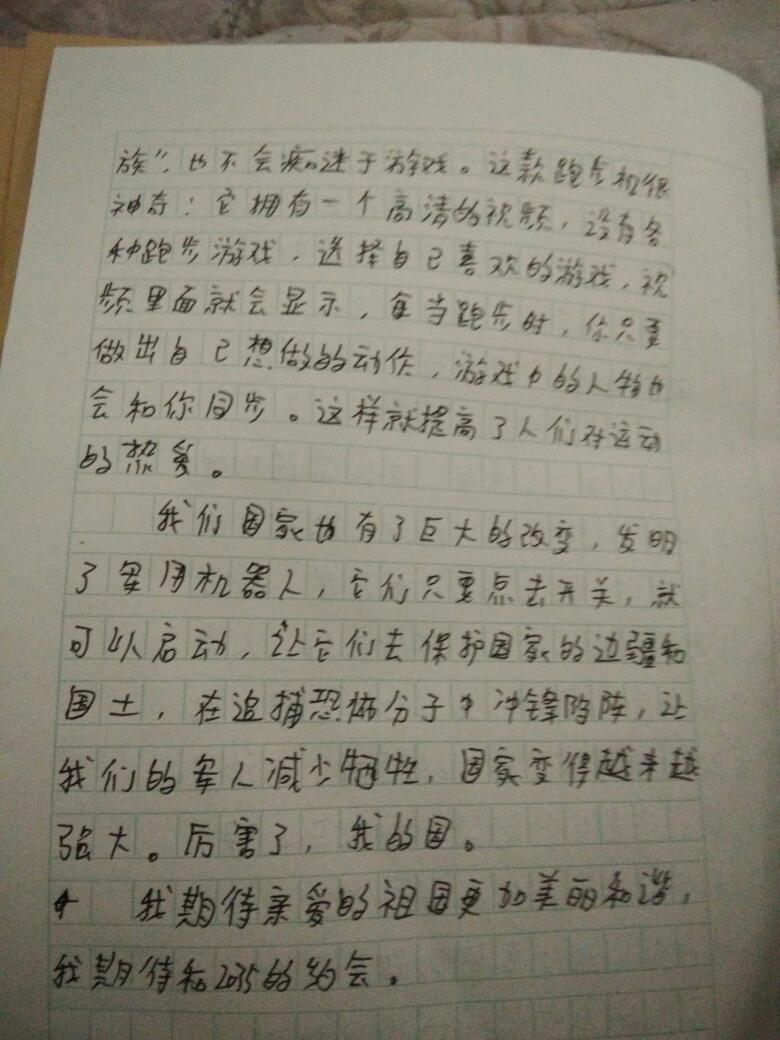 族”，也不会痴迷于游戏。这款跑步机很
神奇：它拥有一个高清的视频，设有各
种跑步游戏，选择自己喜欢的游戏，视
频里面就会显示，每当跑步时，你只要
做出自己想做的动作，游戏中的人物也
会和你同步。这样就提高了人们对运动
的热爱。
我们国家也有了巨大的改变，发明
了军用机器人，它们只要点去开关，就
可以启动，让它们去保护国家的边疆和
国土，在追捕恐怖分子中冲锋陷阵，让
我们的军人减少牺牲，国家变得越来越
强大。厉害了，我的国。
我期待亲爱的祖国更加美丽和谐，
我期待和2035的约会。